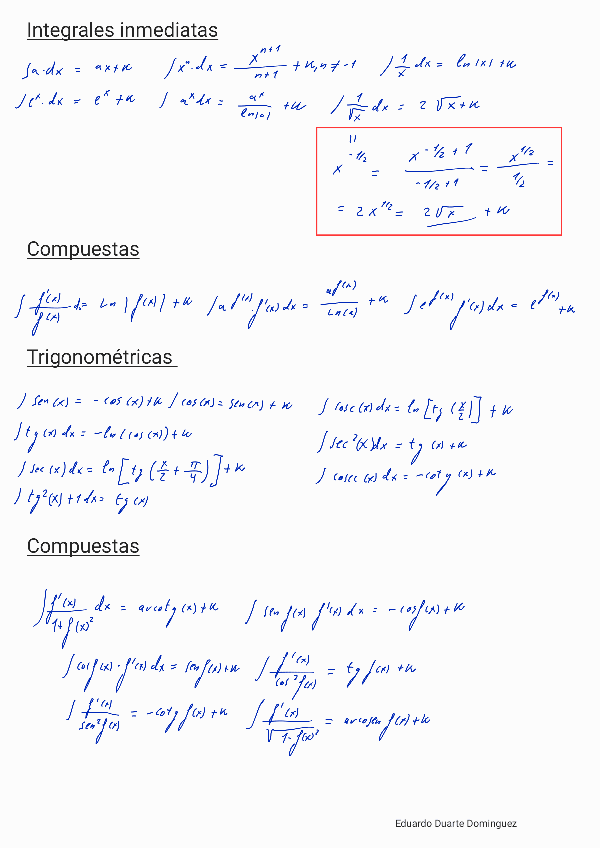 Integrales inmediatas
∫a·dx = ax+k ∫xⁿ·dx = x^(n+1)/(n+1) + k, n≠-1 ∫1/x dx = ln|x|+k
∫eˣ·dx = eˣ+k ∫aˣdx = aˣ/ln(a) + k ∫1/√x dx = 2√x+k
||
x^(-1/2) = x^(-1/2+1)/(-1/2+1) = x^(1/2)/(1/2) =
= 2x^(1/2) = 2√x + k
Compuestas
∫f'(x)/f(x) dx = Ln|f(x)|+k ∫a^f(x)·f'(x)dx = a^f(x)/Ln(a) + k ∫e^f(x) f'(x)dx = e^f(x)+k
Trigonométricas
∫sen(x) = -cos(x)+k ∫cos(x) = sen(x)+k ∫cosc(x)dx = ln[tg(x/2)]+k
∫tg(x)dx = -ln(cos(x))+k ∫sec²(x)dx = tg(x)+k
∫sec(x)dx = ln[tg(x/2 + π/4)]+k ∫cosec(x)dx = -cotg(x)+k
∫tg²(x)+1dx = tg(x)
Compuestas
∫f'(x)/(1+f(x)²) dx = arcotg(x)+k ∫senf(x) f'(x)dx = -cosf(x)+k
∫cosf(x)·f'(x)dx = senf(x)+k ∫f'(x)/cos²f(x) = tg f(x)+k
∫f'(x)/sen²f(x) = -cotg f(x)+k ∫f'(x)/√(1-f(x)²) = arcosen f(x)+k
Eduardo Duarte Dominguez